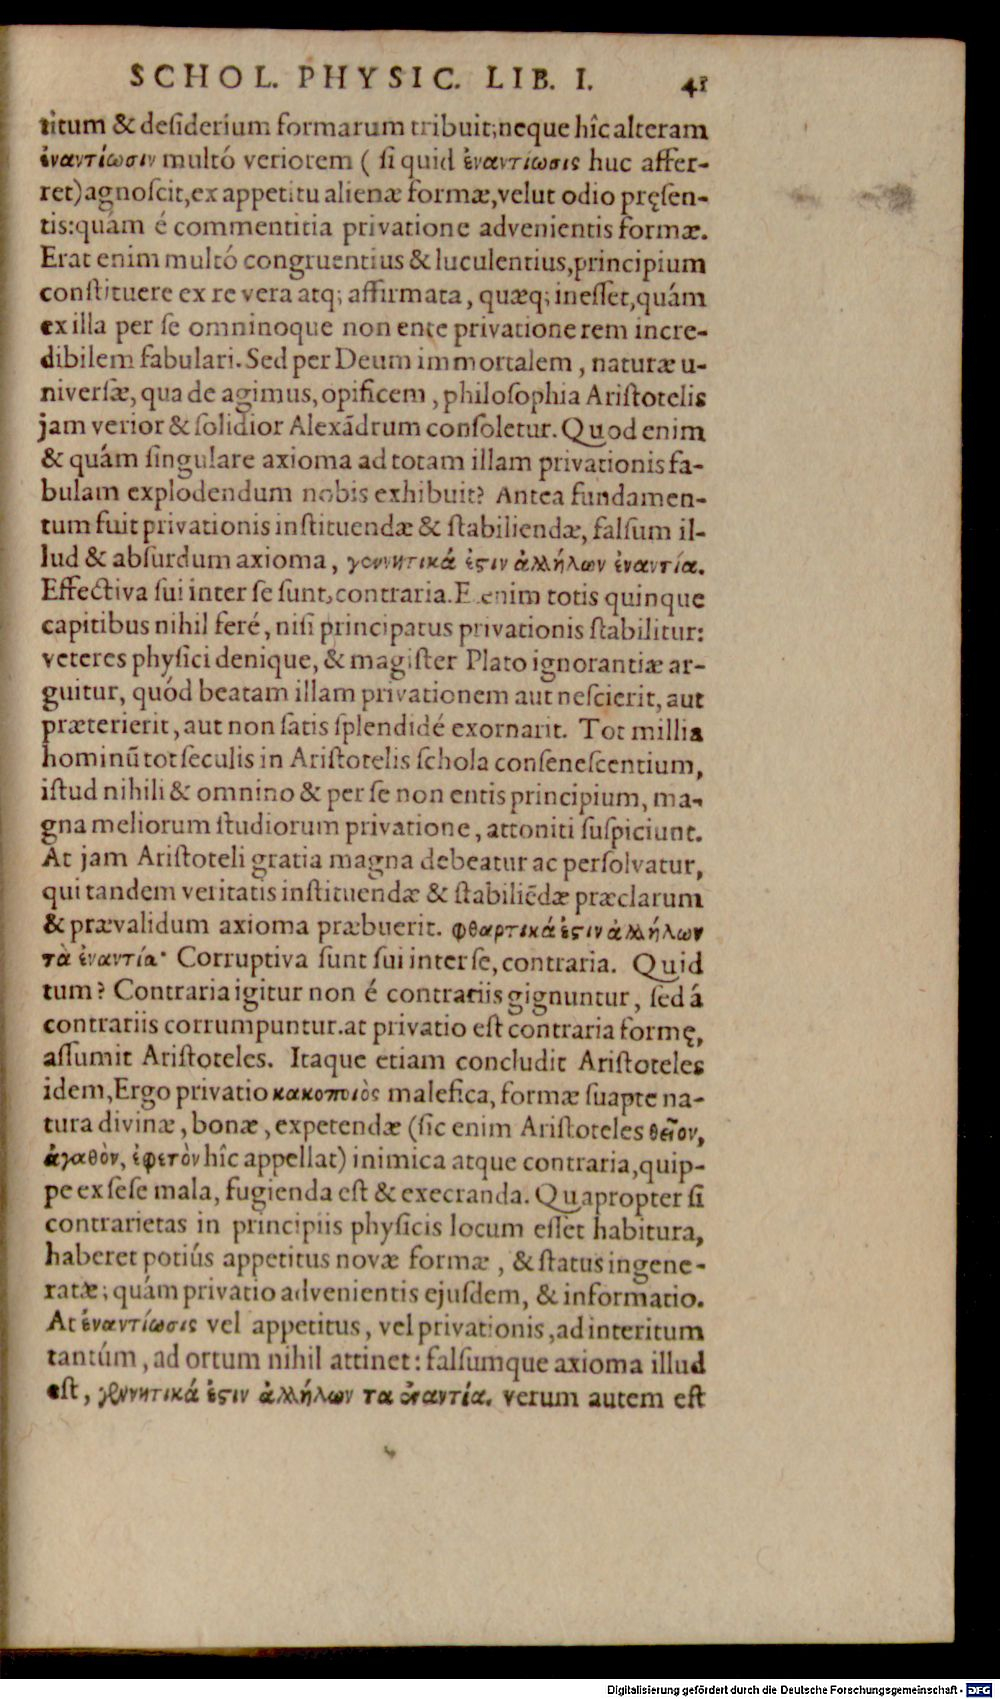 SCHOL. PHYSIC. LIB. I. 41
titum & desiderium formarum tribuit; neque hîc alteram
ἐναντίωσιν multó veriorem ( si quid ἐναντίωσις huc affer-
ret) agnoscit, ex appetitu alienæ formæ, velut odio pręsen-
tis: quám é commentitia privatione advenientis formæ.
Erat enim multó congruentius & luculentius, principium
constituere ex re vera atq; affirmata, quæq; inesset, quám
ex illa per se omninoque non ente privatione rem incre-
dibilem fabulari. Sed per Deum immortalem, naturæ u-
niversæ, qua de agimus, opificem, philosophia Aristotelis
jam verior & solidior Alexãdrum consoletur. Quod enim
& quám singulare axioma ad totam illam privationis fa-
bulam explodendum nobis exhibuit? Antea fundamen-
tum fuit privationis instituendæ & stabiliendæ, falsum il-
lud & absurdum axioma, γεννητικά ἐςιν ἀλλήλων ἐναντία.
Effectiva sui inter se sunt, contraria. E enim totis quinque
capitibus nihil feré, nisi principatus privationis stabilitur:
veteres physici denique, & magister Plato ignorantiæ ar-
guitur, quód beatam illam privationem aut nescierit, aut
præterierit, aut non satis splendidé exornarit. Tot millia
hominũ tot seculis in Aristotelis schola consenescentium,
istud nihili & omnino & per se non entis principium, ma-
gna meliorum studiorum privatione, attoniti suspiciunt.
At jam Aristoteli gratia magna debeatur ac persolvatur,
qui tandem veritatis instituendæ & stabiliẽdæ præclarum
& prævalidum axioma præbuerit. φθαρτικά ἐςιν ἀλλήλων
τὰ ἐναντία· Corruptiva sunt sui inter se, contraria. Quid
tum? Contraria igitur non é contrariis gignuntur, sed á
contrariis corrumpuntur. at privatio est contraria formę,
assumit Aristoteles. Itaque etiam concludit Aristoteles
idem, Ergo privatio κακοποιὸς malefica, formæ suapte na-
tura divinæ, bonæ, expetendæ (sic enim Aristoteles θεῖον,
ἀγαθὸν, ἐφετὸν hîc appellat) inimica atque contraria, quip-
pe ex sese mala, fugienda est & execranda. Quapropter si
contrarietas in principiis physicis locum esset habitura,
haberet potiús appetitus novæ formæ, & status ingene-
ratæ; quám privatio advenientis ejusdem, & informatio.
At ἐναντίωσις vel appetitus, vel privationis, ad interitum
tantúm, ad ortum nihil attinet: falsumque axioma illud
est, γεννητικά ἐςιν ἀλλήλων τα ἐναντία. verum autem est
Digitalisierung gefördert durch die Deutsche Forschungsgemeinschaft - DFG